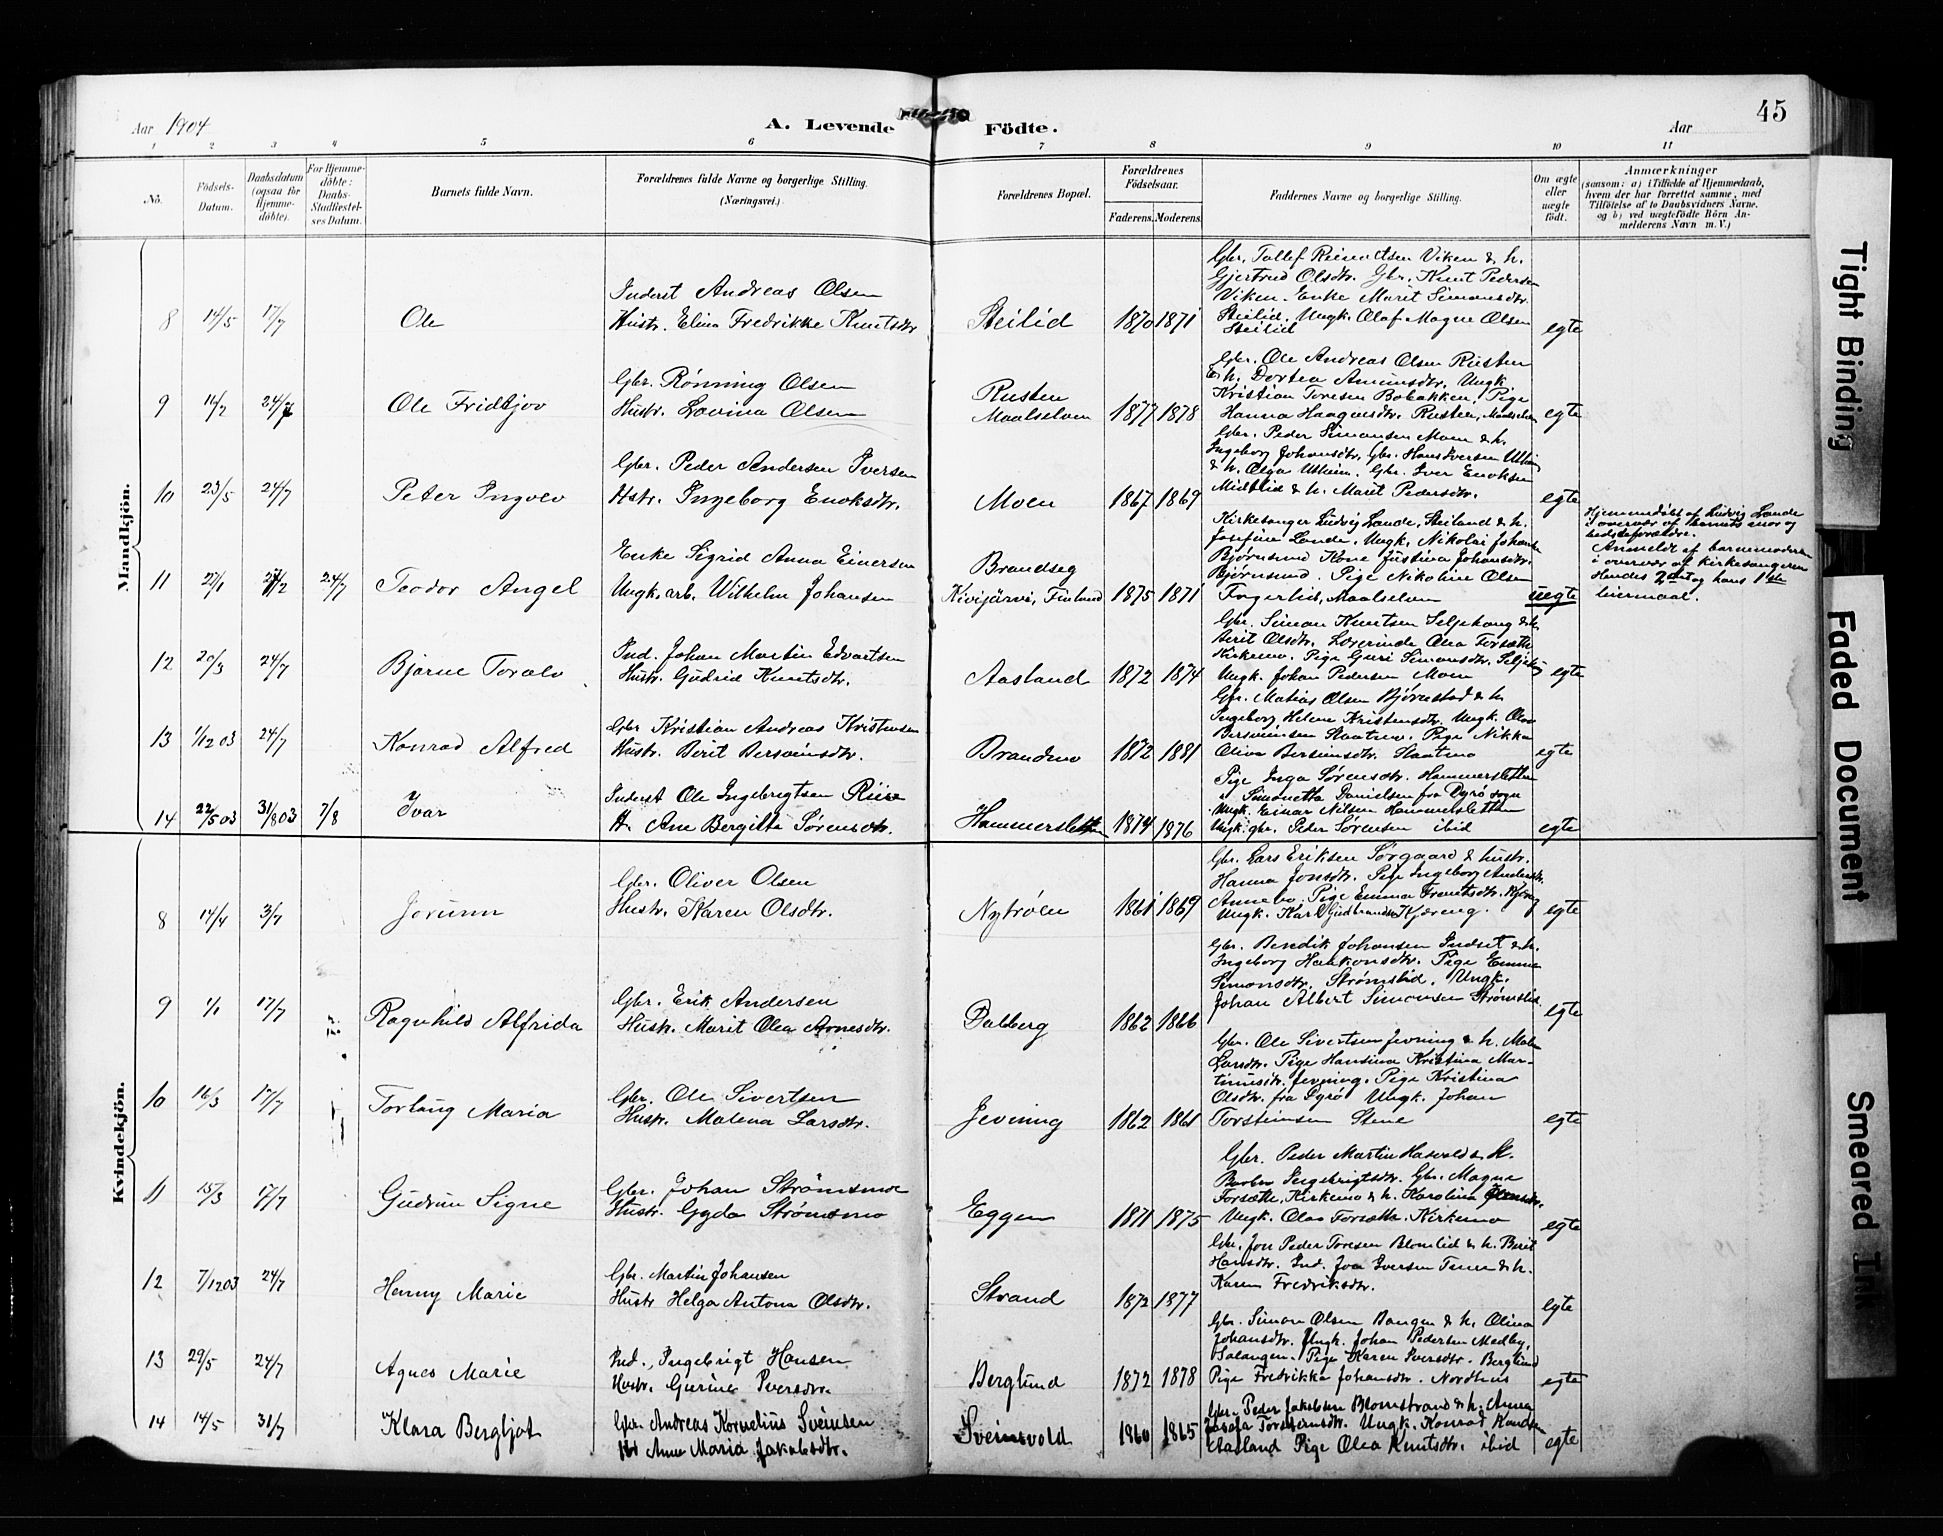 Aar 1904
A. Levende Födte.
Aar
45
1 2 3 4 5 6 7 8 9 10 11
No.
Födsels-Datum.
Daabsdatum (ogsaa for Hjemme-döbte).
For Hjemme-döbte: Daabs-Stadfæstel-ses Datum.
Barnets fulde Navn.
Forældrenes fulde Navne og borgerlige Stilling.
(Næringsvei.)
Forældrenes Bopæl.
Forældrenes Födselsaar.
Faderens. Moderens.
Faddernes Navne og borgerlige Stilling.
Om ægte eller uægte födt.
Anmærkninger
(saasom: a) i Tilfælde af Hjemmedaab, hvem der har forrettet samme, med Tilföielse af to Daabsvidners Navne, og b) ved uægtefödte Börn An-melderens Navn m. V.)
Mandkjön.
8 14/5 17/7 Ole
Inderst Andreas Olsen
Hustr. Elina Fredrikke Knutsdtr
Steilid 1870 1871
Gbr. Tollef Viken & h.
Gjertrud Olsdtr. Gbr. Knut Pedersen
Viken. Enke Marit Simonsdtr.
Steilid. Ungk. Olaf Magne Olsen
Steilid
egte
9 16/2 24/7 Ole Fridtjov
Gbr. Rönning Olsen
Hustr. Lovina Olsen
Rusten
Maalselven 1877 1878
Gbr. Ole Andreas Olsen Rusten
& h. Dortea Amunsdtr. Ungk.
Kristian Toresen Bobakken, Pige
Hanna Haagensdtr. Rusten, Maalselven
egte
10 23/5 24/7 Peter Ingolv
Gbr. Peder Andersen Iversen
Hstr. Ingeborg Enoksdtr.
Moen 1867 1869
Gbr. Peder Simonsen Moen & h.
Ingeborg Johansdtr. Gbr. Hans Iversen
& h. Olga Utheim. Gbr. Iver Enoksen
Midtlid & h. Marit Pedersdtr.
egte
11 24/7 Teodor Angel
Enke Sigrid Anna Einersen
Ungk. arb. Wilhelm Johansen
Brandseg
Kivijärvi, Finland 1875 1871
Kirkesanger Ludvig Lande, Steiland & h.
Josefine Lande. Ungk. Nikolai Johansen
Bjørnsund Kone Justina Johansdtr.
Bjørnsund. Pige Nikoline Olsen
Fagerlid, Maalselven
uegte
Hjemmedøbt af Ludvig Lande
i overvær af barnets mor og
bedsteforældre.
Anmeldt af barnemoderen
i overvær af kirkesangeren
Hendes 2det og hans 1ste
leiermaal.
12 20/3 24/7 Bjarne Toralv
Ind. Johan Martin Edvartsen
Hustr. Gudrid Knutsdtr.
Aasland 1872 1874
Gbr. Simon Knutsen Seljehaug & h.
Berit Olsdtr. Lærerinde Olea Forsæth
Kirkemo. Pige Guri Simonsdtr.
Ungk. Johan Pedersen Moen
egte
13 1/12 03 24/7 Konrad Alfred
Gbr Kristian Andreas Kristensen
Hustr. Berit Bersvensdtr.
Brandmo 1872 1881
Gbr. Matias Olsen Bjørnstad & h.
Ingeborg Helene Kristensdtr. Ungk. Olav
Bersvensen Staatmo. Pige Nikka
Oliva Bersvensdtr. Staatmo
egte
14 22/5 03 31/8 03 7/8 Ivar
Inderst Ole Ingebrigtsen Riise
H. Ane Bergitte Sørensdtr.
Hammersletten 1874 1876
Pige Inga Sørensdtr. Hammersletten
Simonetta Danielsen fra Dyrö sogn
Ungk. Einar Nilsen Hammersletten
Ungk. gbr. Peder Sørensen ibid
egte
Kvindekjön.
8 14/4 3/7 Jorunn
Gbr. Oliver Olsen
Hustr. Karen Olsdtr.
Nytrøen 1861 1869
Gbr. Lars Eriksen Sørgaard & hustr.
Hanna Jonsdtr. Pige Ingeborg Andersdtr.
Annebo. Pige Emma Frantsdtr.
Ungk. Karl Gudbrandsen Kjæreng.
egte
9 17/7 Ragnhild Alfrida
Gbr. Erik Andersen
Hustr. Marit Olea Arnesdtr.
Dalberg 1862 1866
Gbr. Bendik Johansen Indset & h.
Ingeborg Haakonsdtr. Pige Emma
Simonsdtr. Strømslid. Ungk.
Johan Albert Simonsen Strømslid
egte
10 16/3 17/7 Torlaug Maria
Gbr. Ole Sivertsen
Hustr. Malena Larsdtr.
Jevning 1862 1861
Gbr. Ole Sivertsen Jevning & h. Malena
Larsdtr. Pige Hansina Kristina Mar-
tinusdtr. Jevning. Pige Kristina
Olsdtr. fra Dyrø Ungk. Johan
Torsteinsen Stene
egte
11 15/3 17/7 Gudrun Signe
Gbr. Johan Strømsmoe
Hustr. Gyda Strømsmo
Eggen 1871 1875
Gbr. Peder Martin & H.
Barbro Ingebrigtsdtr. Gbr. Magne
Forsæth, Kirkemo & h. Karolina
Ungk. Olav Forsæth. Kirkemo
egte
12 7/12 03 24/7 Henny Marie
Gbr. Martin Johansen
Hustr Helga Antona Olsdtr.
Strand 1872 1877
Gbr. Jon Peder Toresen Blomlid & h. Berit
Hansdtr. Ind. Iversen & h.
Karen Fredriksdtr.
egte
13 29/5 24/7 Agnes Marie
Ind. Ingebrigt Hansen
Hustr. Gurine Iversdtr.
Berglund 1872 1878
Gbr. Simon Olsen Bangen & h. Olina
Johansdtr. Ungk. Johan Pedersen Medby,
Salangen. Pige Karen Iversdtr. Berglund
Pige Fredrikka Johansdtr. Nordhus
egte
14 14/5 31/7 Klara Bergljot
Gbr. Andreas Kornelius Sveinsen
Anne Maria Jakobsdtr.
Sveinsvold 1860 1865
Gbr. Peder Jakobsen Blomstrand & h. Anna
Josefa Torsteinsdtr. Ungk. Konrad Knudsen
Aasland Pige Olea Knutsdtr. ibid
egte
Tight Binding
Faded Document
Smeared Ink